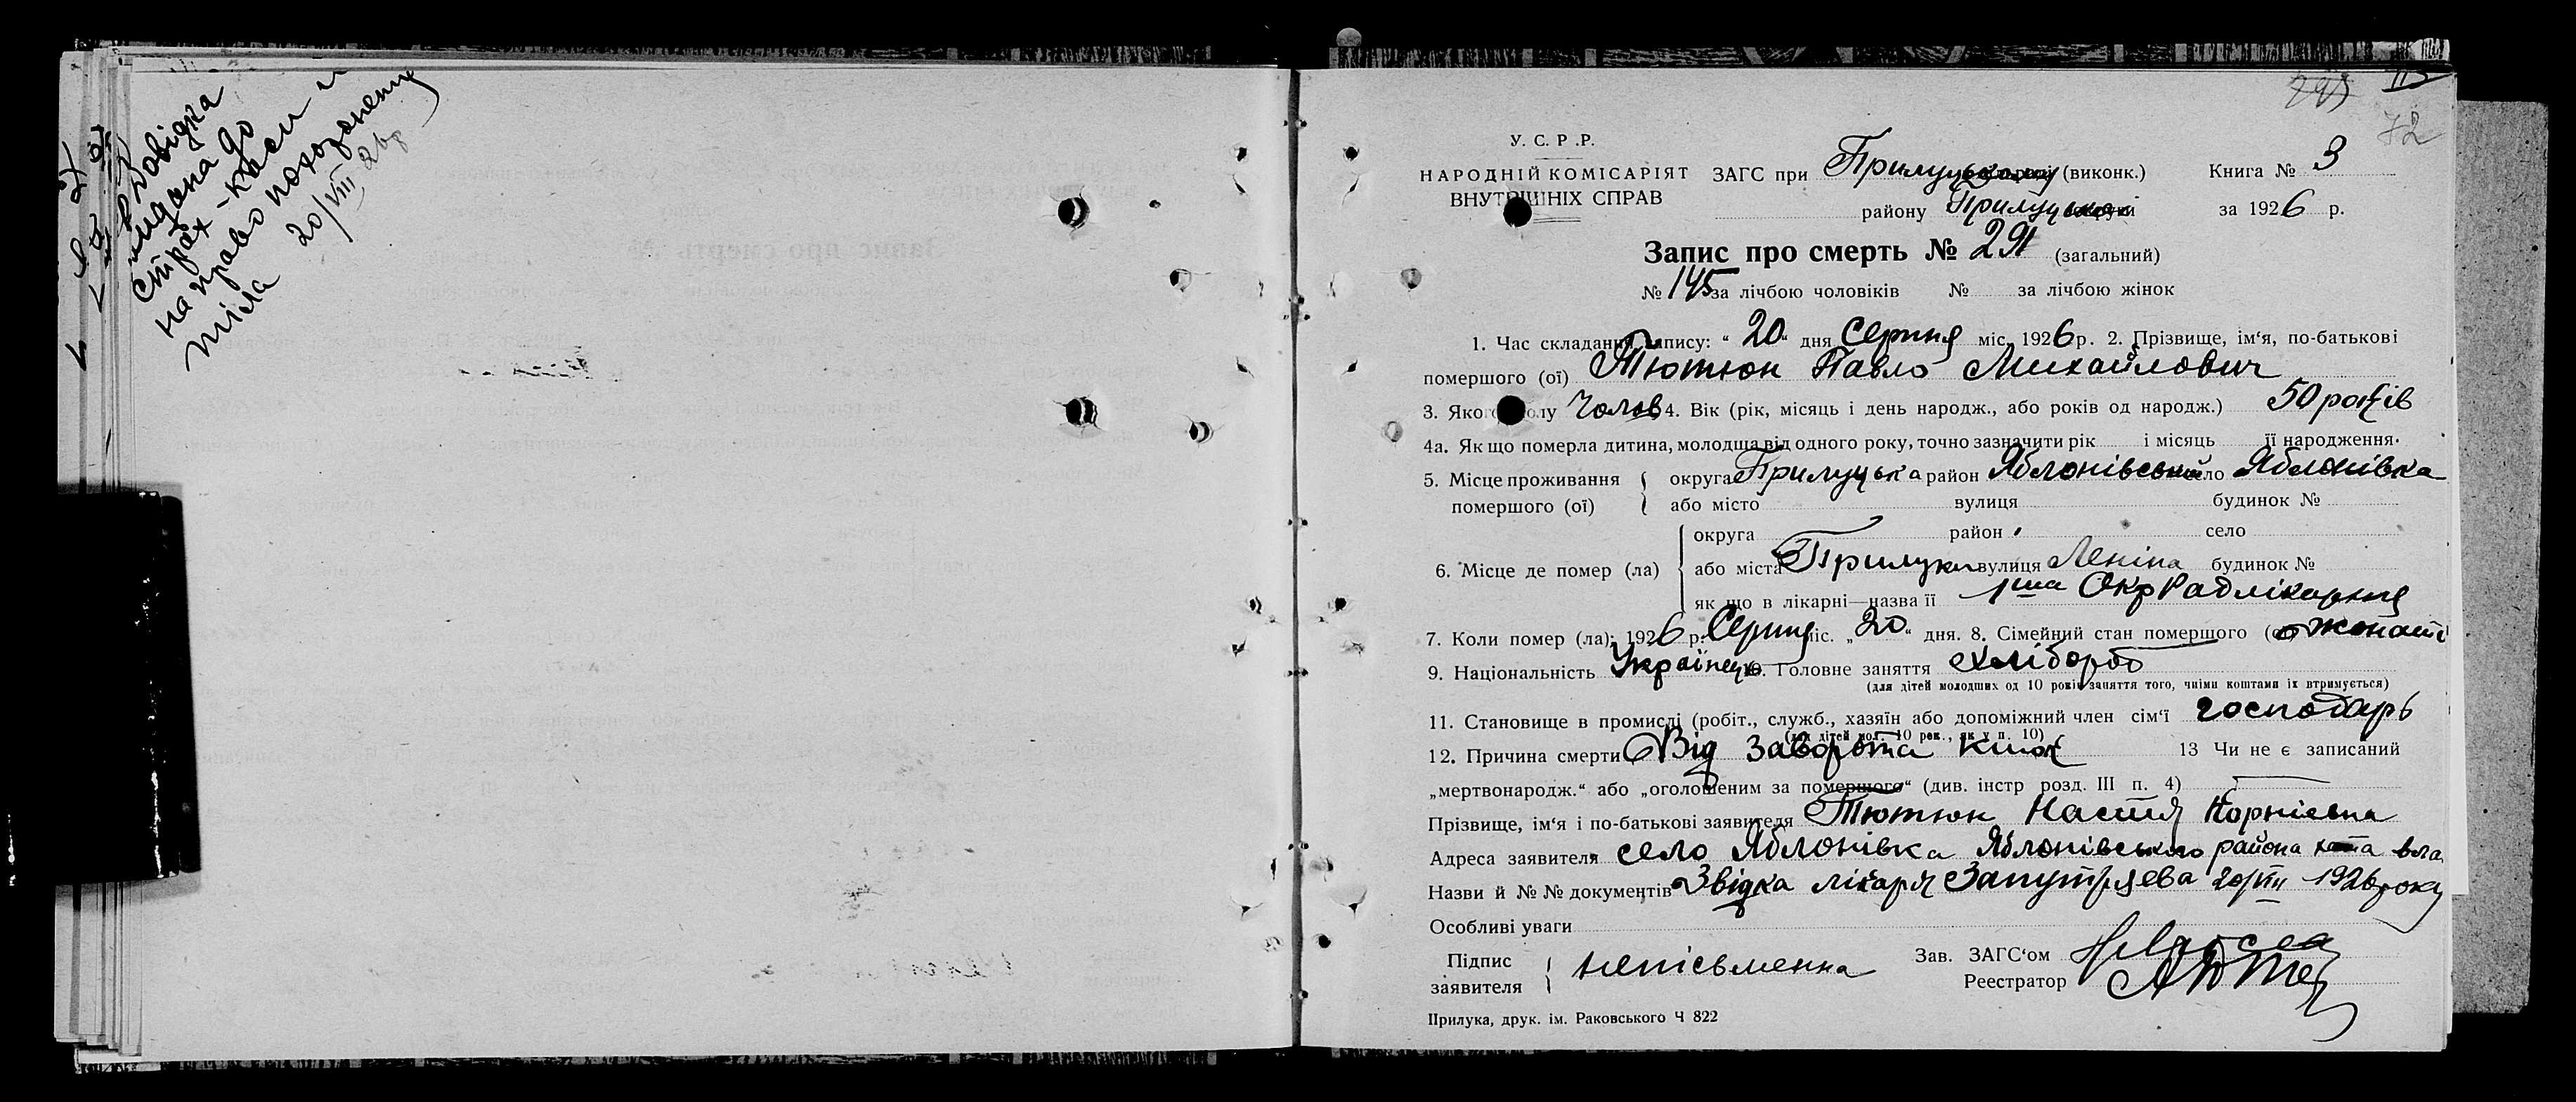 Довідка
видана до
страх-каси
на право поховання
тіла 20/VIII 26р
72
У. С. Р. Р.
НАРОДНІЙ КОМІСАРІЯТ
ВНУТРІШНІХ СПРАВ
ЗАГС при Прилуцькому (виконк.) Книга № 3
району Прилуцької за 1926 р.
Запис про смерть № (загальний)
№ 145 за лічбою чоловіків № за лічбою жінок
1. Час складання запису: " 20 " дня Серпня міс. 1926 р. 2. Прізвище, ім'я, по-батькові
помершого (ої) Тютюн Павло Михайлович
3. Якого полу Чолов 4. Вік (рік, місяць і день народж., або років од народж.) 50 років
4а. Як що померла дитина, молодша від одного року, точно зазначити рік і місяць її народження.
5. Місце проживання помершого (ої) { округа Прилуцька район Яблонівський село Яблонівка
або місто вулиця будинок №
6. Місце де помер (ла) { округа район село
або місто Прилуки вулиця Леніна будинок №
як що в лікарні—назва її 1ша ОкрРадлікарня
7. Коли помер (ла): 1926 р. Серпня міс. „ 20 " дня. 8. Сімейний стан помершого (ої) жонат
9. Національність Українець 10. Головне заняття хлібороб
(для дітей молодших од 10 років заняття того, чиїми коштами їх втримується)
11. Становище в промислі (робіт., служб., хазяїн або допоміжний член сім'ї господарь
(для дітей мол. 10 рок., як у п. 10)
12. Причина смерти Від заворота кишок 13 Чи не є записаний
„мертвонародж." або „оголошеним за помершого" (див. інстр розд. III п. 4)
Прізвище, ім'я і по-батькові заявителя Тютюн Настя Корніевна
Адреса заявителя село Яблонівка Яблонівського района хата вла
Назви й №№ документів Звідка лікаря 20/VIII 1926 року
Особливі уваги
Підпис заявителя } неписьменна
Зав. ЗАГС'ом
Реестратор
Прилука, друк. ім. Раковського Ч 822